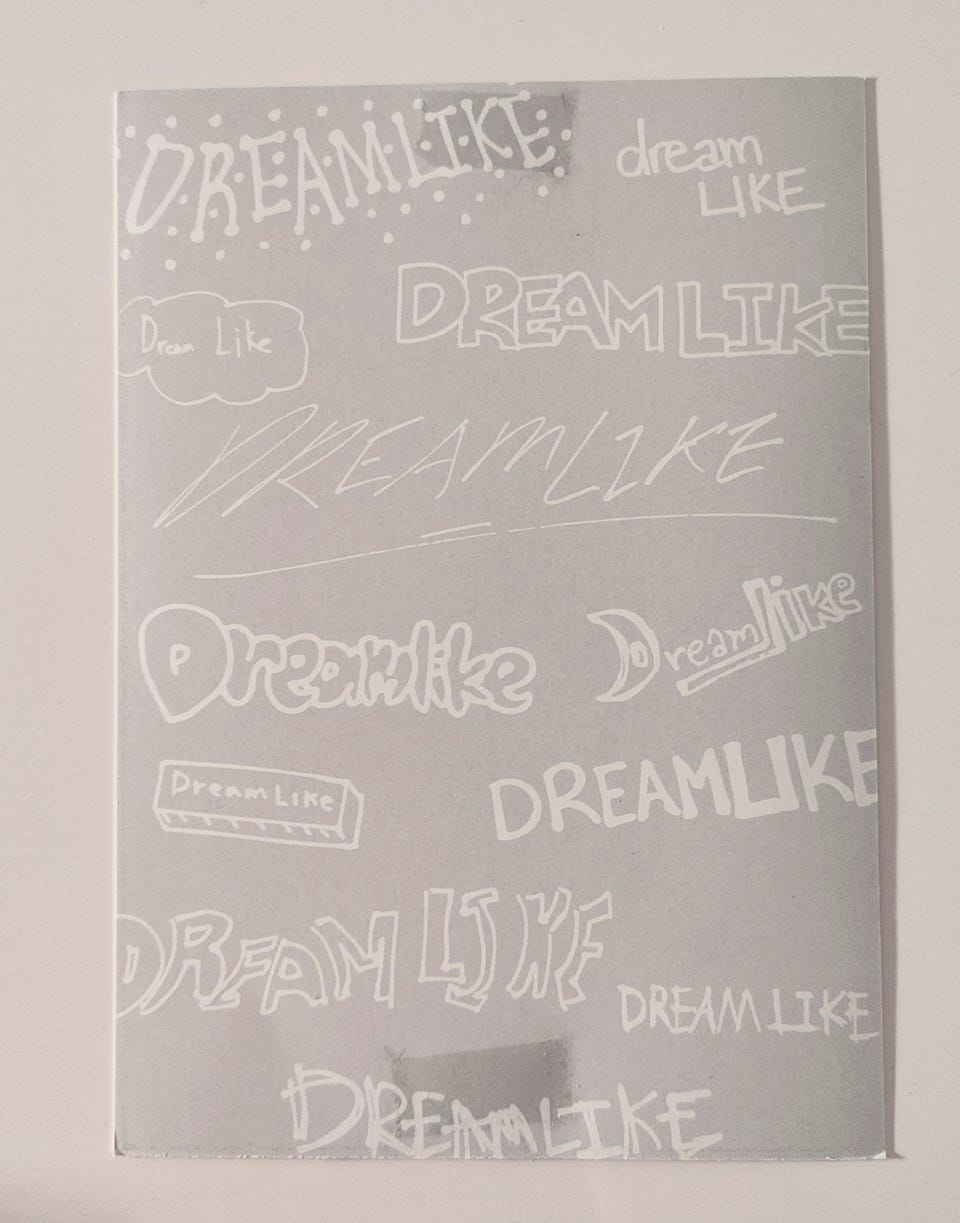 DREAMLIKE
dream
LIKE
Dream Like
DREAM LIKE
DREAMLIKE
Dreamlike
Dreamlike
DreamLike
DREAMLIKE
DREAM LIKE
DREAM LIKE
DREAMLIKE